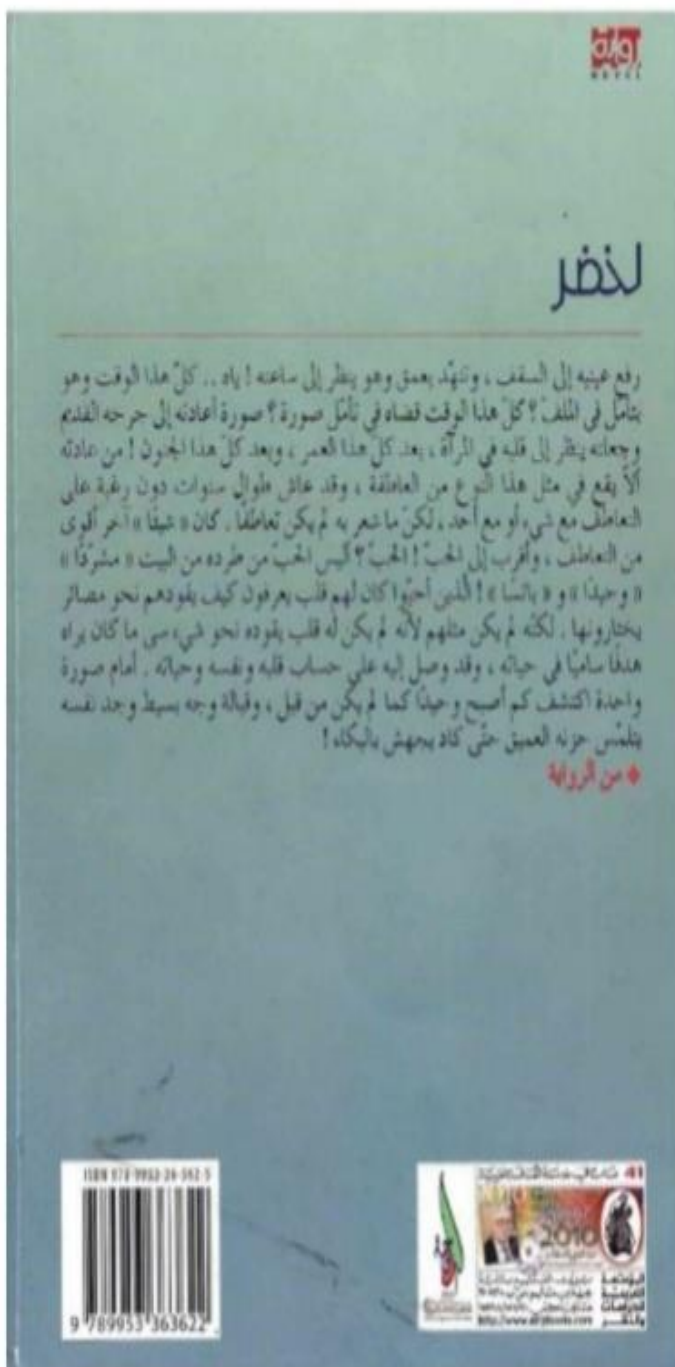 رواية
NOVEL
لخضر
رفع عينيه إلى السقف ، وتنهّد بعمق وهو ينظر إلى ساعته ! ياه .. كلّ هذا الوقت وهو
يتأمّل في الملفّ ؟ كلّ هذا الوقت قضاه في تأمّل صورة ؟ صورة أعادته إلى جرحه القديم
وجعلته ينظر إلى قلبه في المرآة ، بعد كلّ هذا العمر ، وبعد كلّ هذا الجنون ! من عادته
ألاّ يقع في مثل هذا النوع من العاطفة ، وقد عاش طوال سنوات دون رغبة على
التعاطف مع شيء أو مع أحد ، لكنّ ما شعر به لم يكن تعاطفًا . كان « شيئًا » آخر أقوى
من التعاطف ، وأقرب إلى الحبّ ! الحبّ ؟ أليس الحبّ من طرده من البيت « مشرّدًا »
« وحيدًا » و « بائسًا » ! الّذين أحبّوا كان لهم قلب يعرفون كيف يقودهم نحو مصائر
يختارونها . لكنّه لم يكن مثلهم لأنّه لم يكن له قلب يقوده نحو شيء سى ما كان يراه
هدفًا ساميًا في حياته ، وقد وصل إليه على حساب قلبه ونفسه وحياته . أمام صورة
واحدة اكتشف كم أصبح وحيدًا كما لم يكن من قبل ، وقبالة وجه بسيط وجد نفسه
يتلمّس حزنه العميق حتّى كاد يجهش بالبكاء !
◆ من الرواية
ISBN 978-9953-36-362-
9 789953 363622
2010
المؤسسة
العربية
للدراسات
والنشر